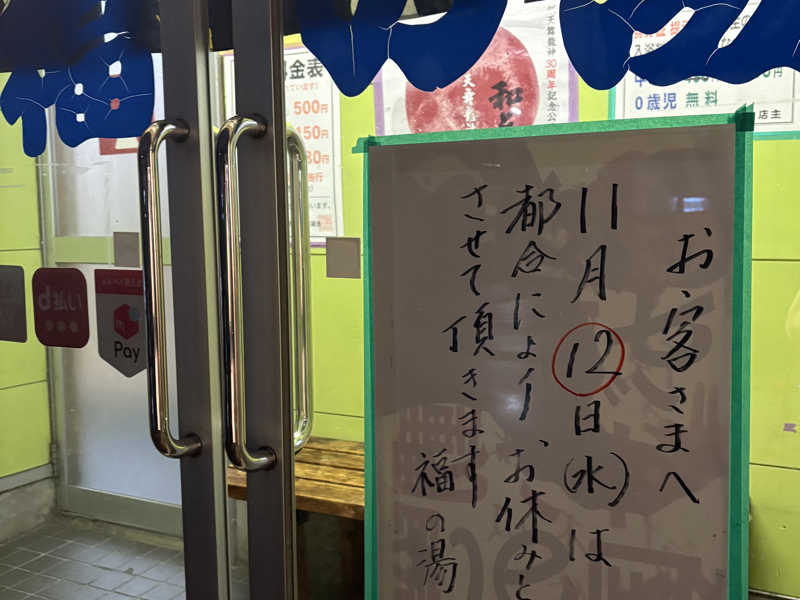 お客さまへ
11月12日(水)は
都合により、お休みと
させて頂きます
福の湯
金表
500円
150円
和
30周年記念公
0歳児 無料
店主
d払い
Pay